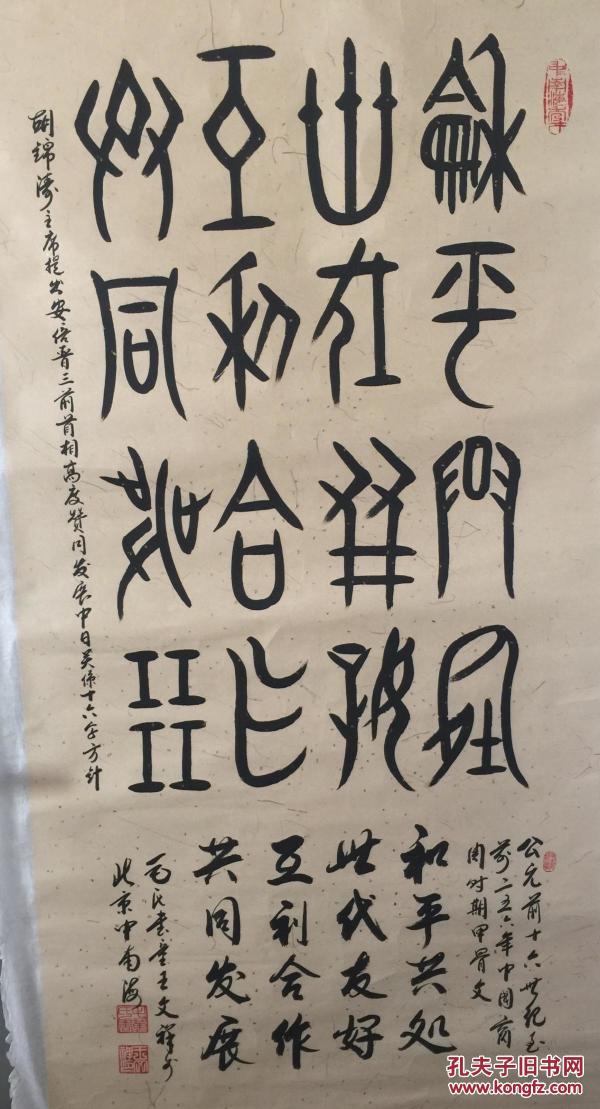 和平共处
世代友好
互利合作
共同发展
胡锦涛主席提出安倍晋三前首相高度赞同发展中日关系十六字方针
公元前十六世纪至
前二五六年中国商
周时期甲骨文
和平共处
世代友好
互利合作
共同发展
北京中南海
孔夫子旧书网
www.kongfz.com